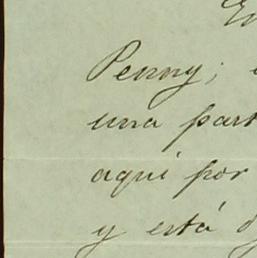 Penny;
una part
aquí por
y está